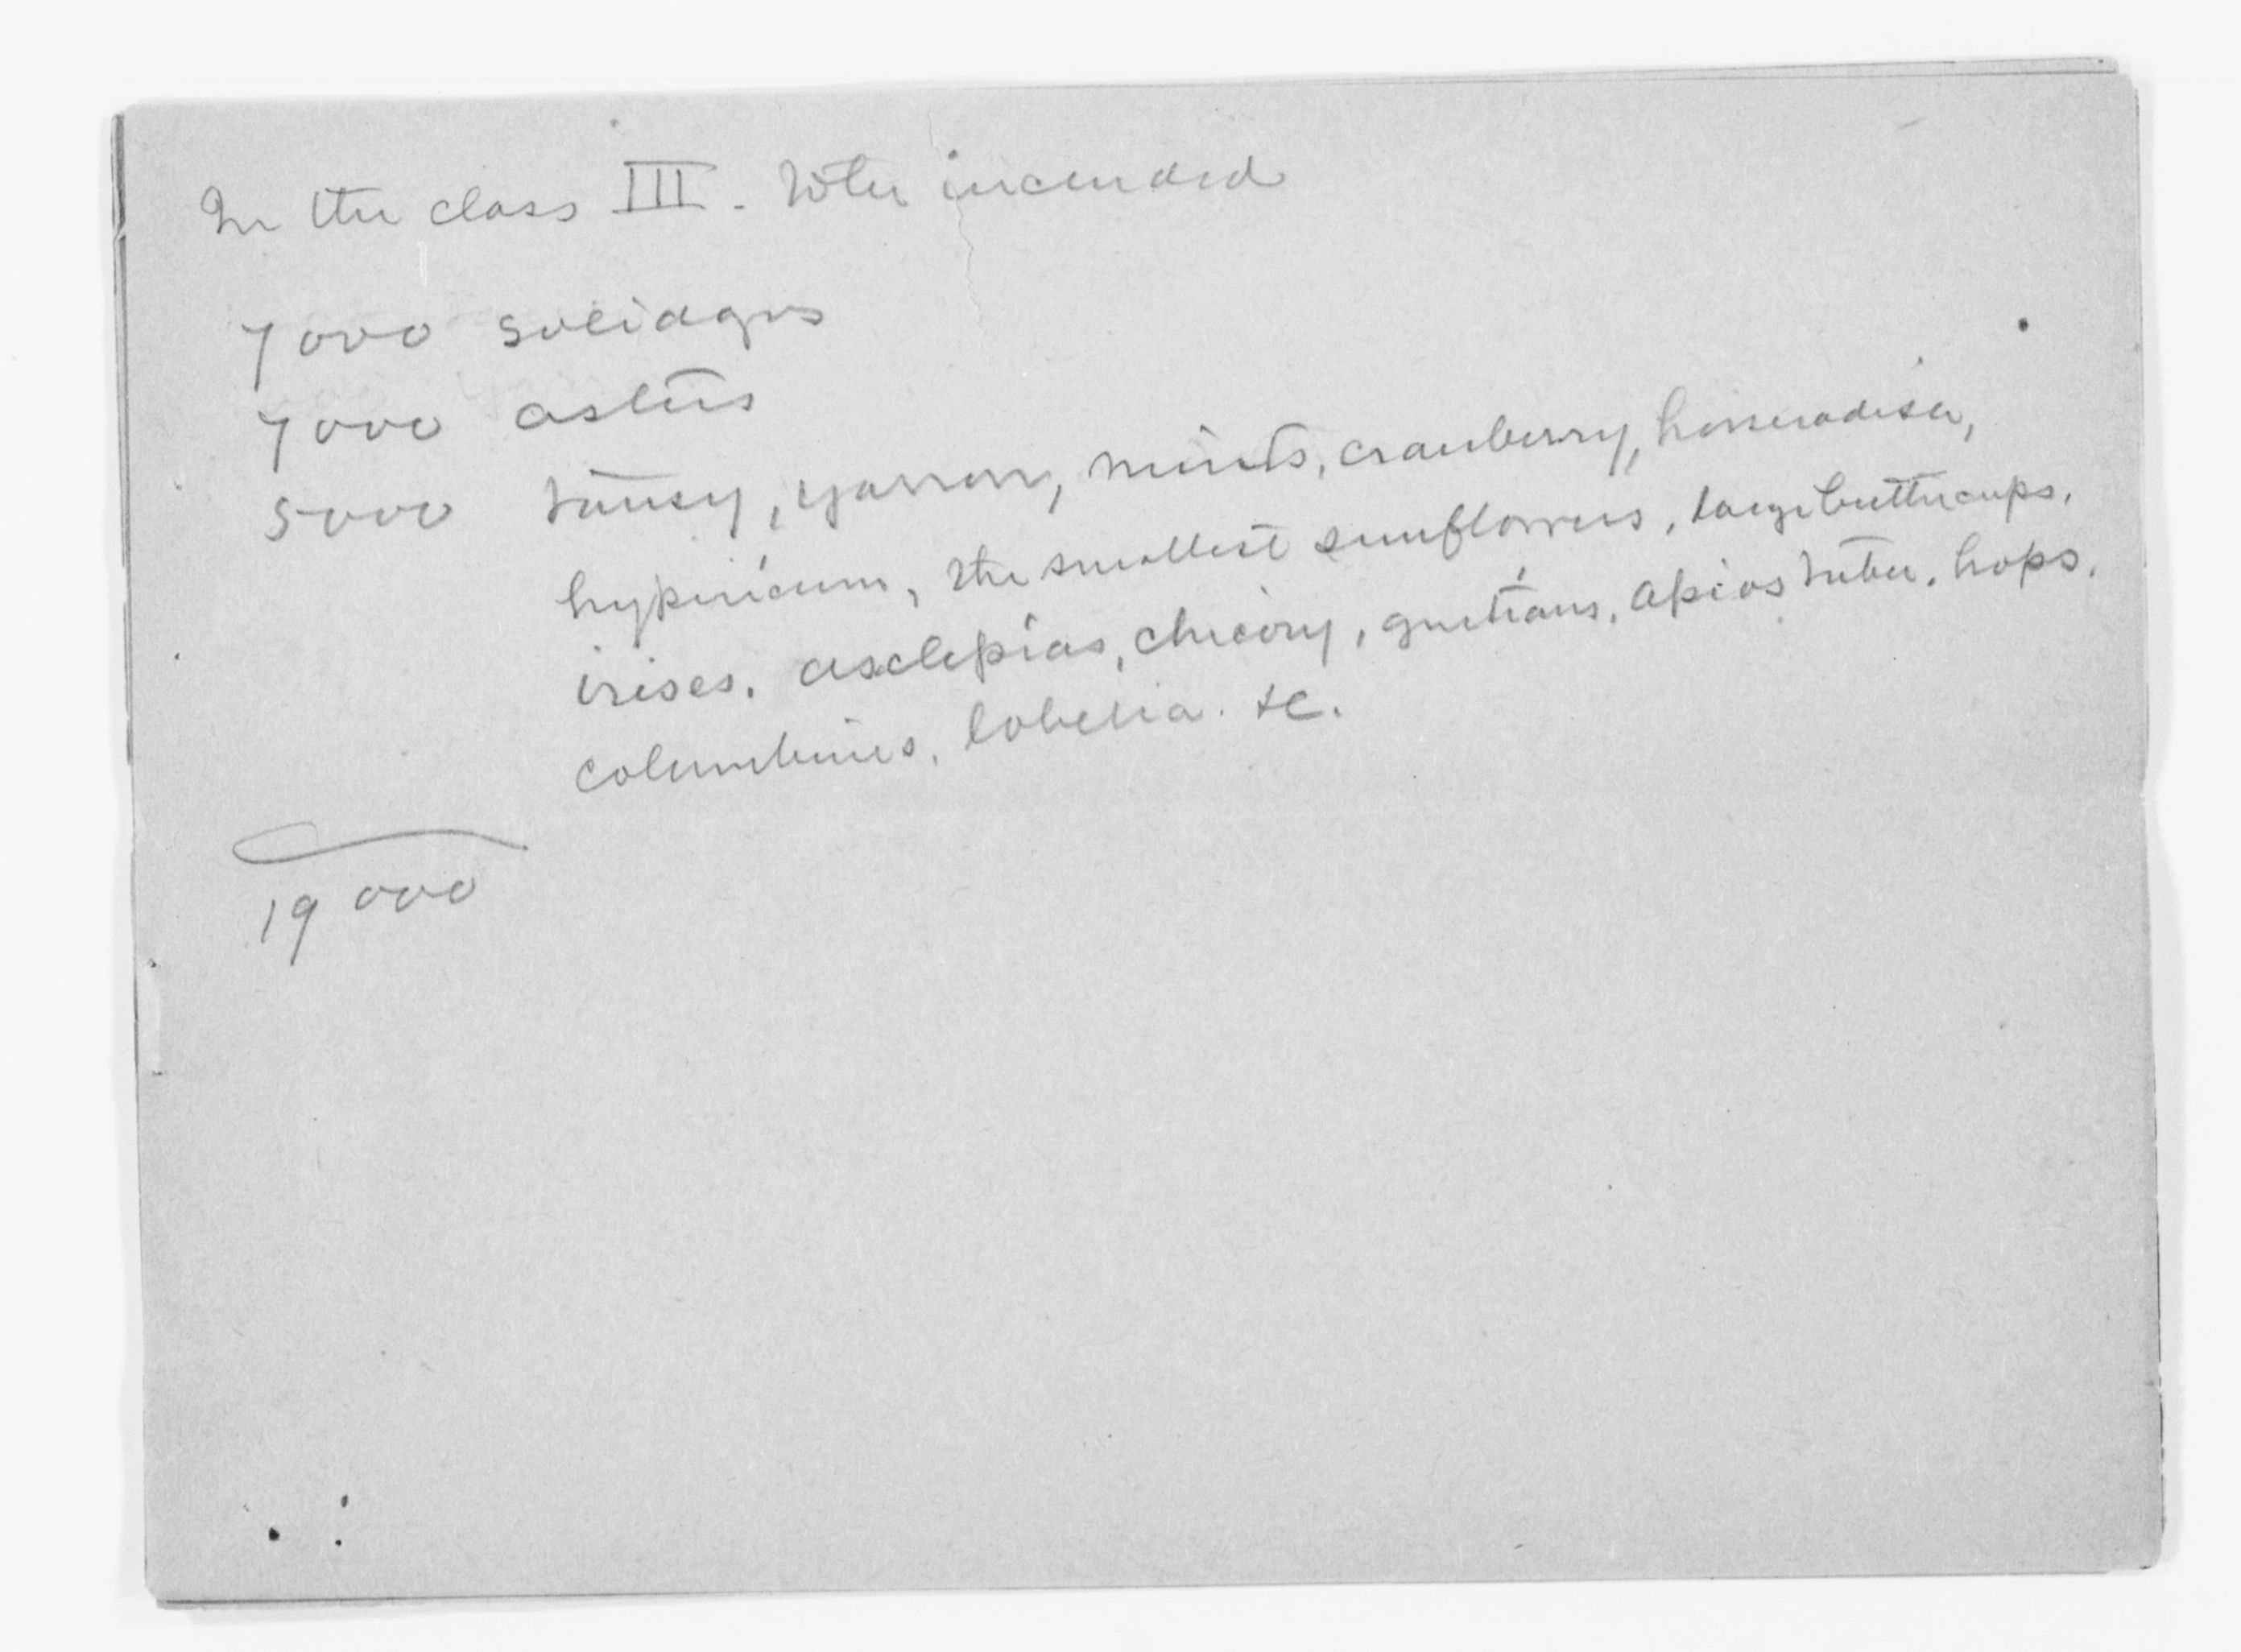 In the class III - to be included
7000 solidagos
7000 asters
5000 tansy, yarrow, mints, cranberry, horseradish,
hypericum, the smallest sunflowers, large buttercups,
irises. asclepias, chicory, gentians, apios tuber, hops,
columbines, lobelia. &c.
19 000